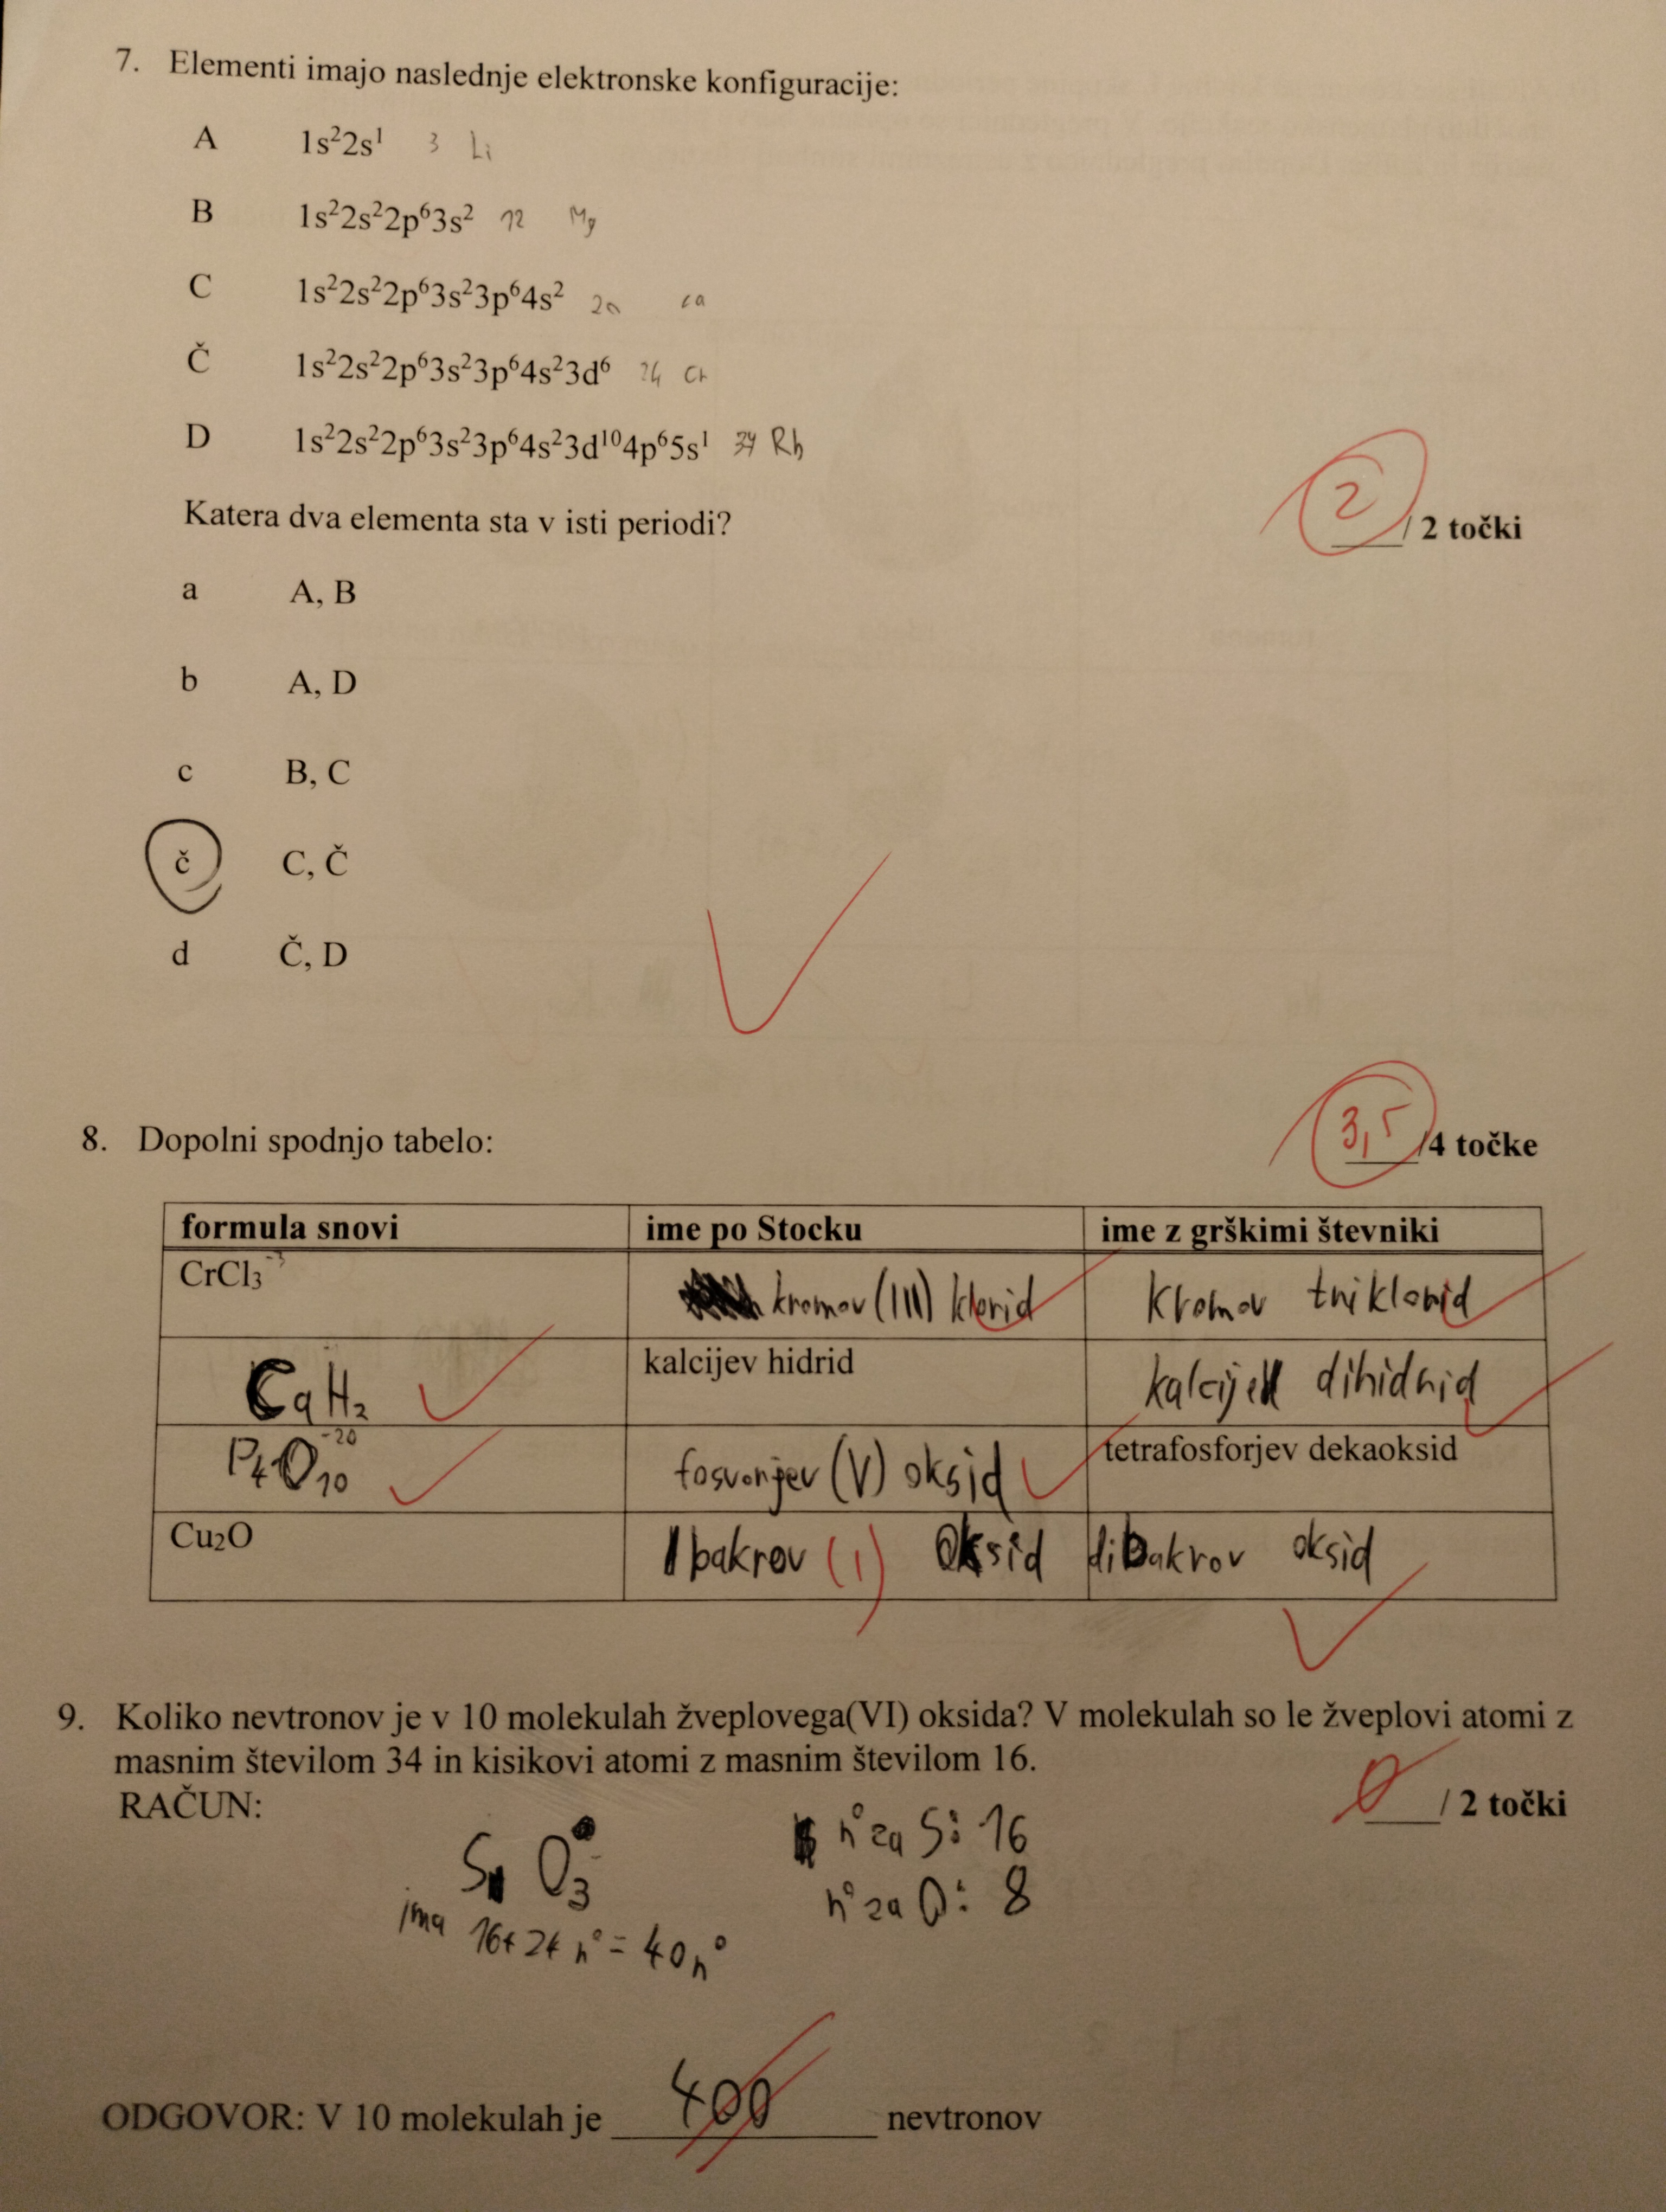 7. Elementi imajo naslednje elektronske konfiguracije:
A 1s²2s¹ 3 Li
B 1s²2s²2p⁶3s² 12 Mg
C 1s²2s²2p⁶3s²3p⁶4s² 20 ca
Č 1s²2s²2p⁶3s²3p⁶4s²3d⁶ 24 Cr
D 1s²2s²2p⁶3s²3p⁶4s²3d¹⁰4p⁶5s¹ 37 Rb
Katera dva elementa sta v isti periodi? 2 / 2 točki
a A, B
b A, D
c B, C
č C, Č
d Č, D
8. Dopolni spodnjo tabelo: 3,5 /4 točke
formula snovi ime po Stocku ime z grškimi števniki
CrCl₃ kromov (III) klorid kromov triklorid
CaH₂ kalcijev hidrid kalcijev dihidrid
P₄O₁₀ -20 fosvorjev (V) oksid tetrafosforjev dekaoksid
Cu₂O bakrov (I) oksid dibakrov oksid
9. Koliko nevtronov je v 10 molekulah žveplovega(VI) oksida? V molekulah so le žveplovi atomi z
masnim številom 34 in kisikovi atomi z masnim številom 16.
RAČUN: 0 / 2 točki
S O₃ n° za S: 16
ima 16+24 n° = 40 n° n° za O: 8
ODGOVOR: V 10 molekulah je 400 nevtronov